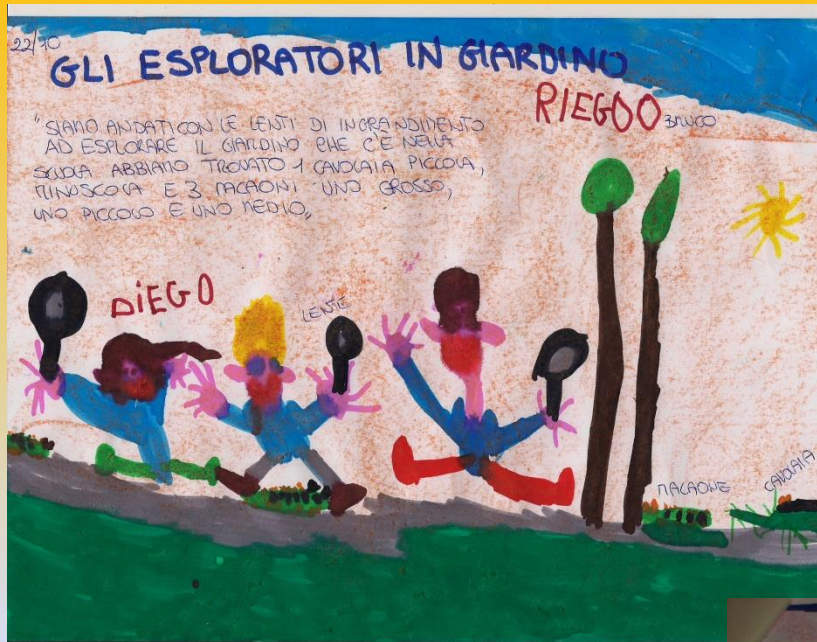 22/10
GLI ESPLORATORI IN GIARDINO
BRUCO
"SIAMO ANDATI CON LE LENTI DI INGRANDIMENTO
AD ESPLORARE IL GIARDINO CHE C'È NELLA
SCUOLA ABBIAMO TROVATO 1 CAVOLAIA PICCOLA,
MINUSCOLA E 3 MACAONI UNO GROSSO,
UNO PICCOLO E UNO MEDIO"
DIEGO
LENTE
MACAONE
CAVOLAIA